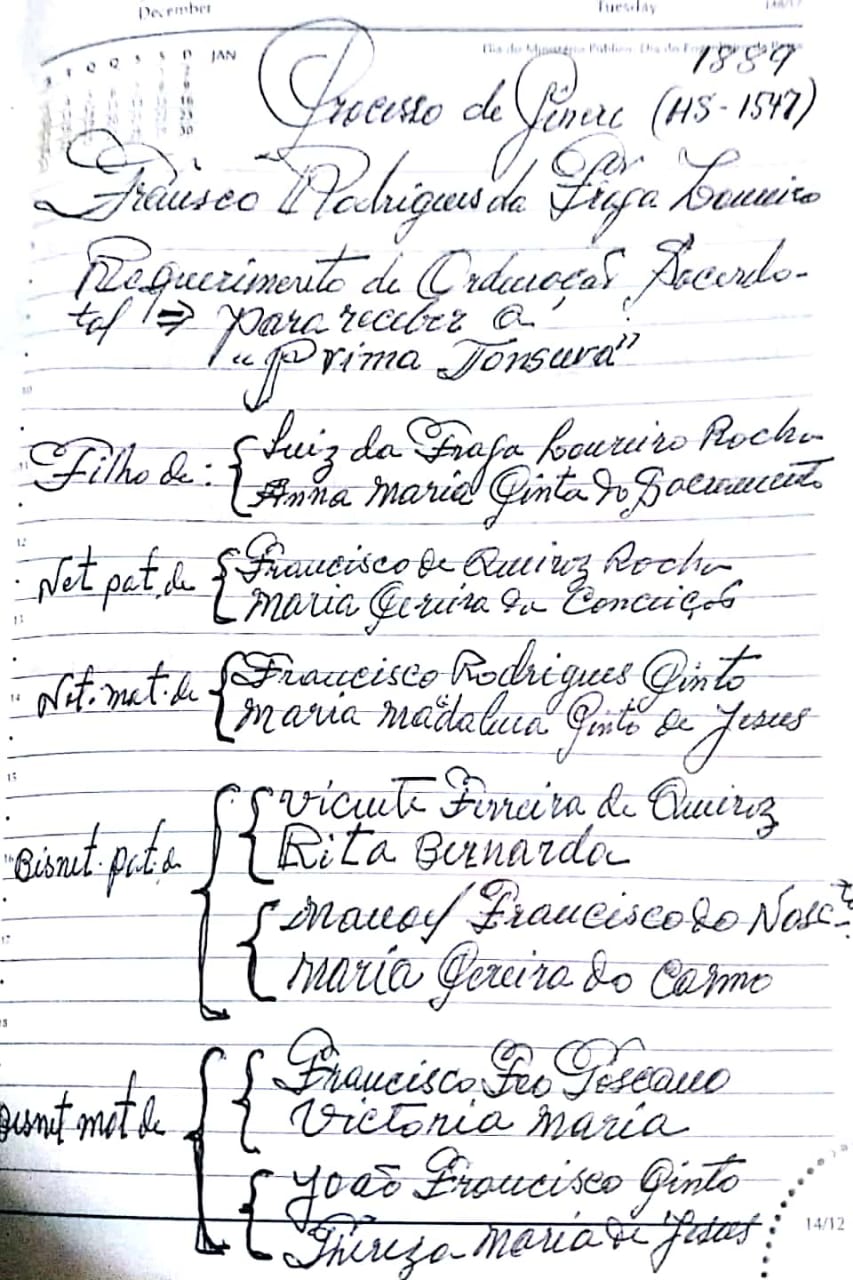 December Tuesday
S T Q Q S S D JAN
1889
Processo de Genere (HS-1547)
Francisco Rodrigues da Fraga Loureiro
Requerimento de Ordenação Sacerdo-
tal ⇒ para receber a
"Prima Tonsura"
Filho de: { Luiz da Fraga Loureiro Rocha
Anna Maria Pinta do Sacramento
Net pat. de { Francisco de Queiroz Rocha
Maria Pereira da Conceição
Net. mat. de { Francisco Rodrigues Pinto
Maria Madalena Pinto de Jesus
Bisnet. pat. de { { Vicente Ferreira de Queiroz
Rita Bernarda
{ Manoel Francisco do Nasc.to
Maria Pereira do Carmo
Bisnet mat de { { Francisco Feo Toscano
Victoria Maria
{ João Francisco Pinto
Thereza Maria de Jesus
14/12